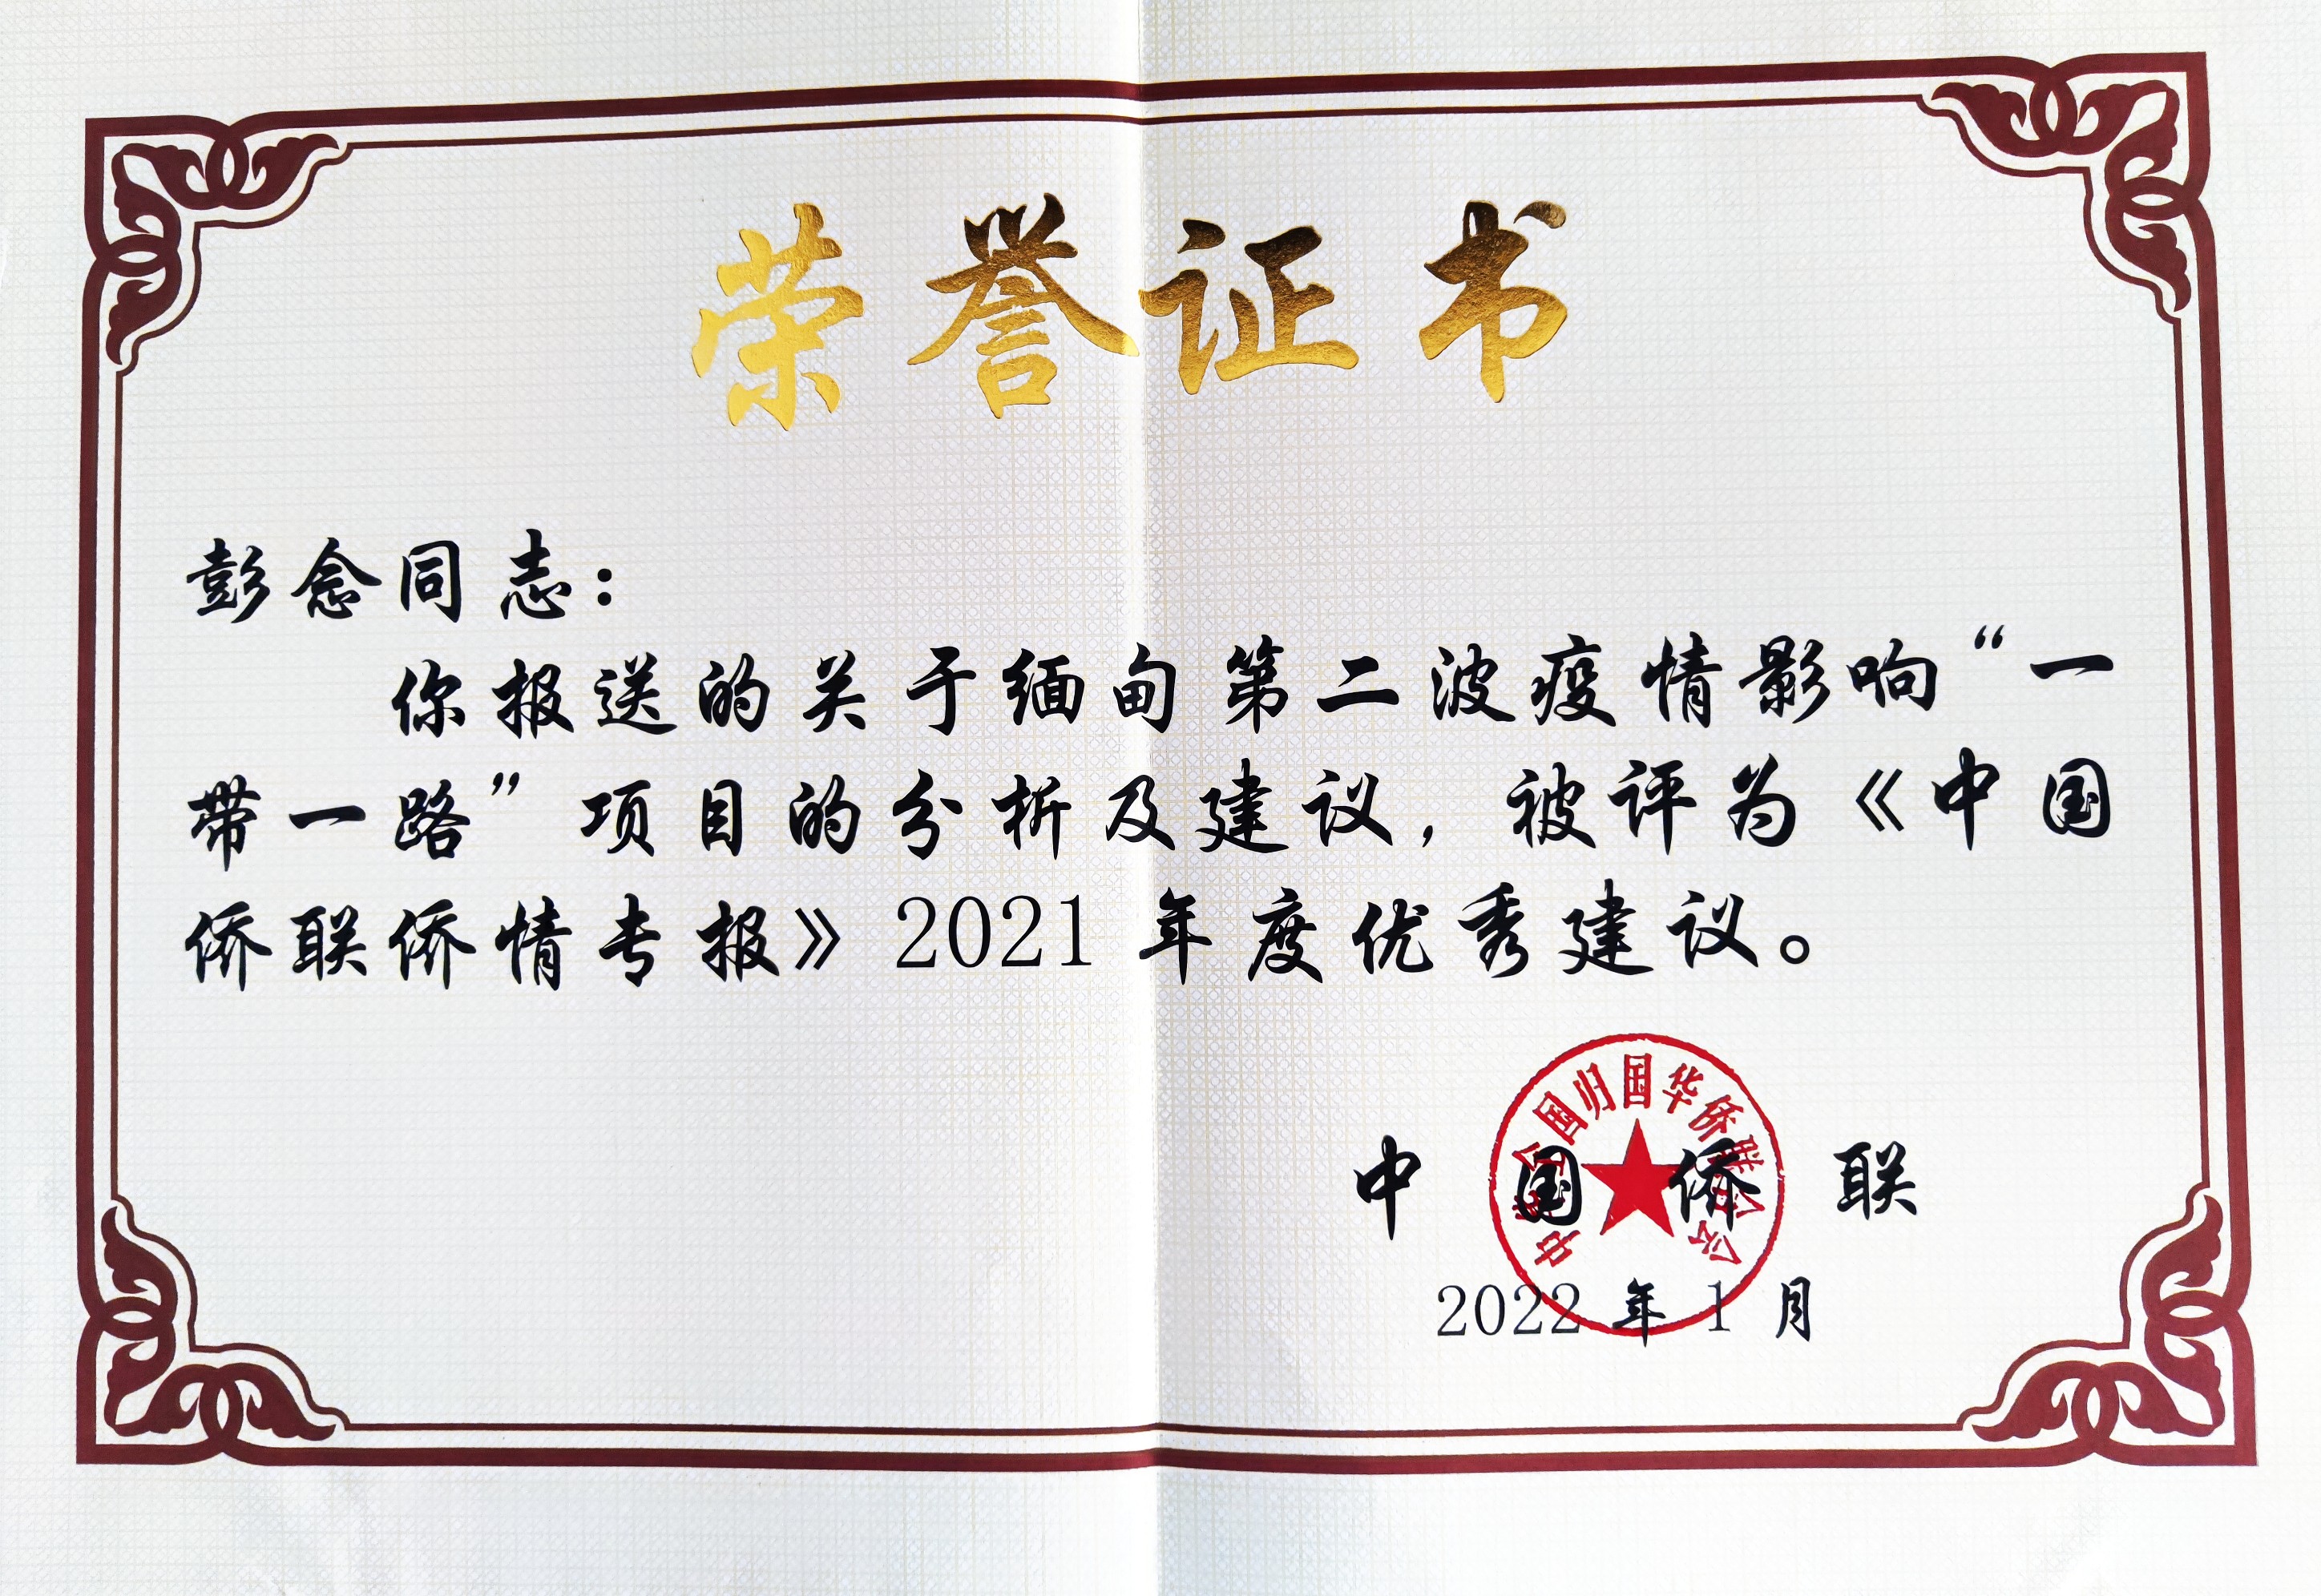 荣誉证书
彭念同志：
你报送的关于缅甸第二波疫情影响“一
带一路”项目的分析及建议，被评为《中国
侨联侨情专报》2021年度优秀建议。
中华全国归国华侨联合会
中国侨联
2022年1月